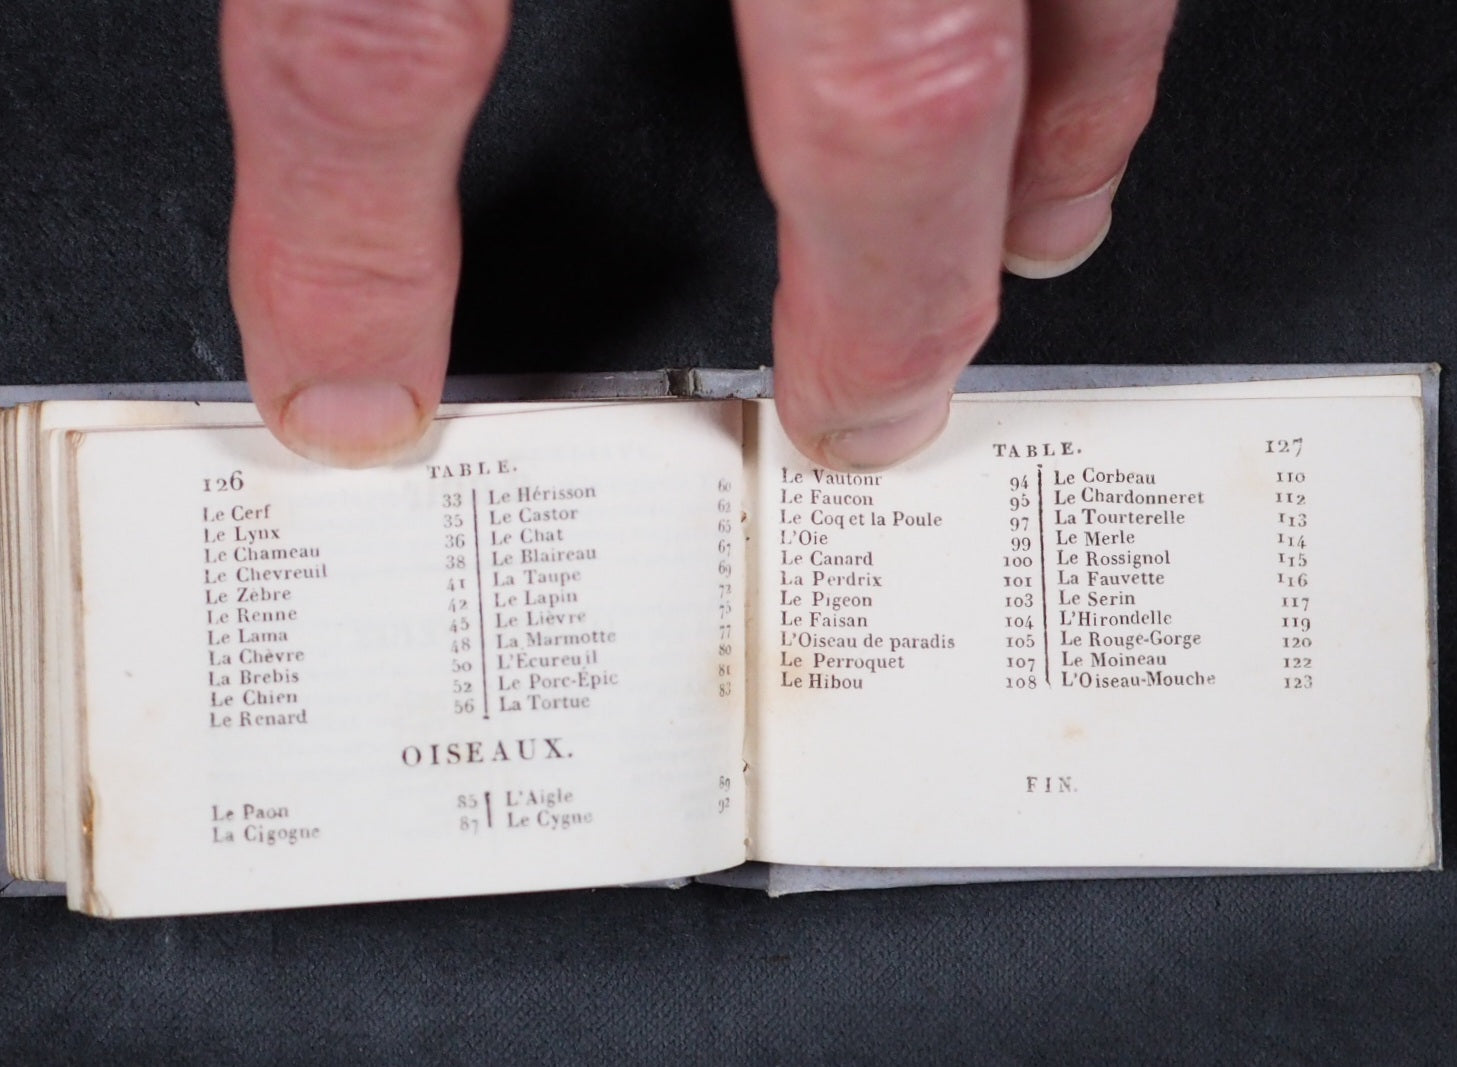 126 TABLE.
Le Cerf 33
Le Lynx 35
Le Chameau 36
Le Chevreuil 38
Le Zèbre 41
Le Renne 42
Le Lama 45
La Chèvre 48
La Brebis 50
Le Chien 52
Le Renard 56
Le Hérisson 60
Le Castor 62
Le Chat 65
Le Blaireau 67
La Taupe 69
Le Lapin 72
Le Lièvre 75
La Marmotte 77
L'Ecureuil 80
Le Porc-Épic 81
La Tortue 83
OISEAUX.
Le Paon 85
La Cigogne 87
L'Aigle 89
Le Cygne 92
TABLE. 127
Le Vautour 94
Le Faucon 95
Le Coq et la Poule 97
L'Oie 99
Le Canard 100
La Perdrix 101
Le Pigeon 103
Le Faisan 104
L'Oiseau de paradis 105
Le Perroquet 107
Le Hibou 108
Le Corbeau 110
Le Chardonneret 112
La Tourterelle 113
Le Merle 114
Le Rossignol 115
La Fauvette 116
Le Serin 117
L'Hirondelle 119
Le Rouge-Gorge 120
Le Moineau 122
L'Oiseau-Mouche 123
FIN.